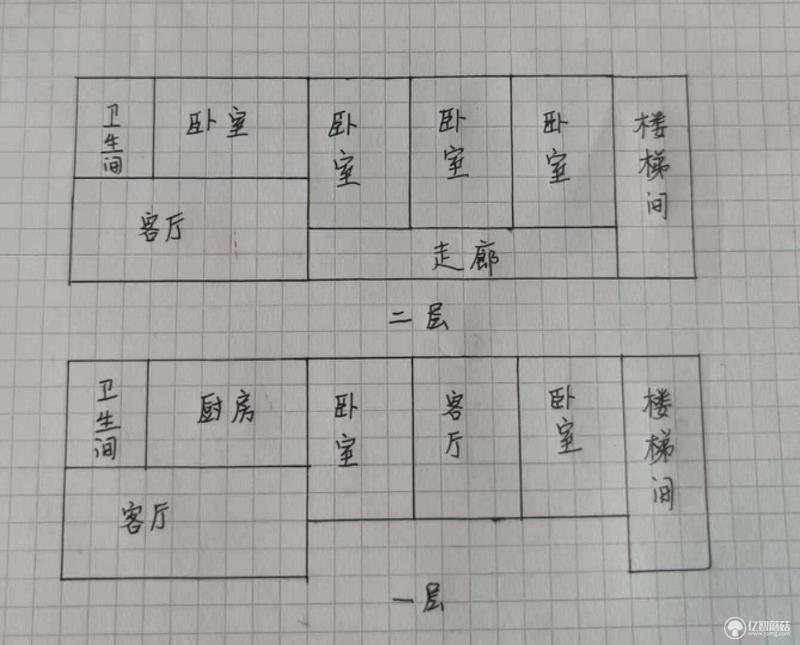 卫生间
卧室
卧室
卧室
卧室
楼梯间
客厅
走廊
二层
卫生间
厨房
卧室
客厅
卧室
楼梯间
客厅
一层
亿智蘑菇